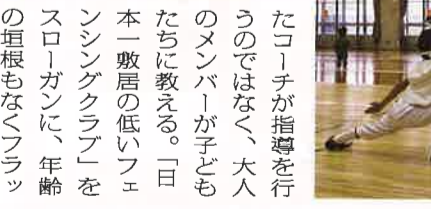 たコーチが指導を行
うのではなく、大人
のメンバーが子ども
たちに教える。「日
本一敷居の低いフェ
ンシングクラブ」を
スローガンに、年齢
の垣根もなくフラッ